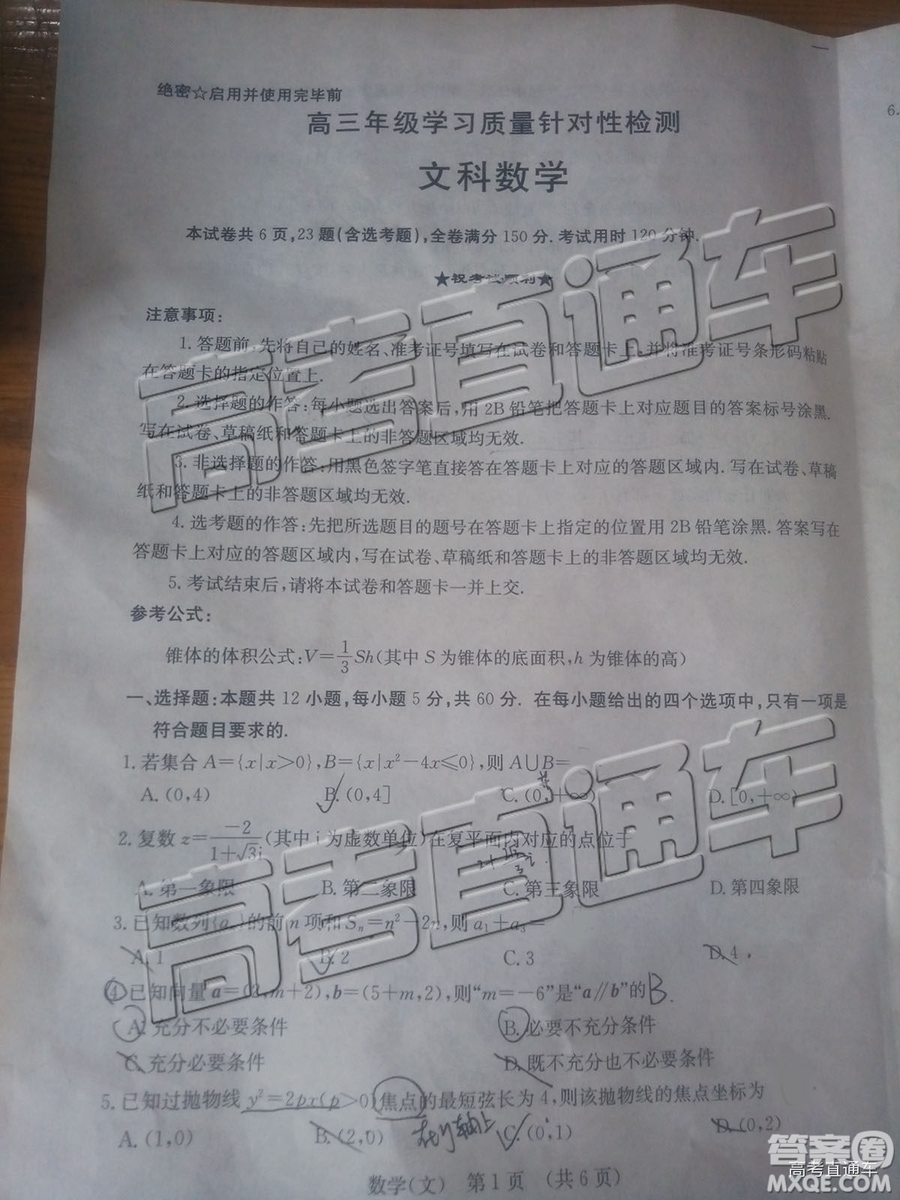 绝密☆启用并使用完毕前
高三年级学习质量针对性检测
文科数学
本试卷共6页,23题(含选考题),全卷满分150分.考试用时120分钟.
★祝考试顺利★
注意事项:
1.答题前,先将自己的姓名、准考证号填写在试卷和答题卡上,并将准考证号条形码粘贴
在答题卡的指定位置上.
2.选择题的作答:每小题选出答案后,用2B铅笔把答题卡上对应题目的答案标号涂黑.
写在试卷、草稿纸和答题卡上的非答题区域均无效.
3.非选择题的作答:用黑色签字笔直接答在答题卡上对应的答题区域内.写在试卷、草稿
纸和答题卡上的非答题区域均无效.
4.选考题的作答:先把所选题目的题号在答题卡上指定的位置用2B铅笔涂黑.答案写在
答题卡上对应的答题区域内,写在试卷、草稿纸和答题卡上的非答题区域均无效.
5.考试结束后,请将本试卷和答题卡一并上交.
参考公式:
锥体的体积公式:V=1/3Sh(其中S为锥体的底面积,h为锥体的高)
一、选择题:本题共12小题,每小题5分,共60分.在每小题给出的四个选项中,只有一项是
符合题目要求的.
1.若集合A={x|x>0},B={x|x²-4x≤0},则A∪B=
A.(0,4) B.(0,4] C.(0,+∞) D.[0,+∞)
2.复数z=-2/(1+√3i)(其中i为虚数单位)在复平面内对应的点位于
A.第一象限 B.第二象限 C.第三象限 D.第四象限
3.已知数列{aₙ}的前n项和Sₙ=n²-2n,则a₁+a₃=
A.1 B.2 C.3 D.4
4.已知向量a=(2,m+2),b=(5+m,2),则“m=-6”是“a∥b”的 B
A.充分不必要条件 B.必要不充分条件
C.充分必要条件 D.既不充分也不必要条件
5.已知过抛物线y²=2px(p>0)焦点的最短弦长为4,则该抛物线的焦点坐标为
A.(1,0) B.(2,0) C.(0,1) D.(0,2)
数学(文) 第1页 (共6页)
6.
高考直通车
高考直通车
答案圈
MXQE.COM
高考直通车